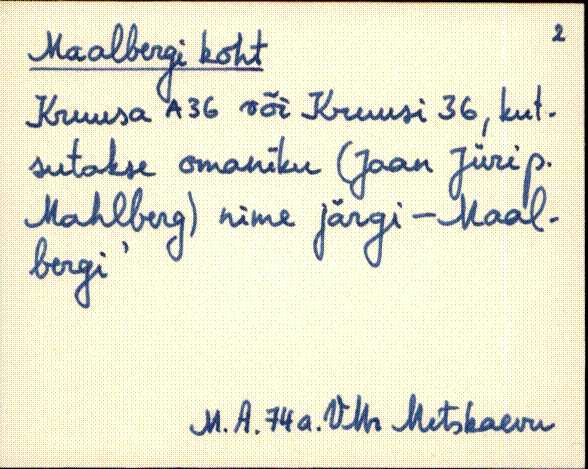 2
Maalbergi koht
Kruusa A36 või Kruusi 36, kut-
sutakse omaniku (Jaan Jüri p.
Mahlberg) nime järgi – Maal-
bergi'
M.A. 74 a. VMr Metskaevu